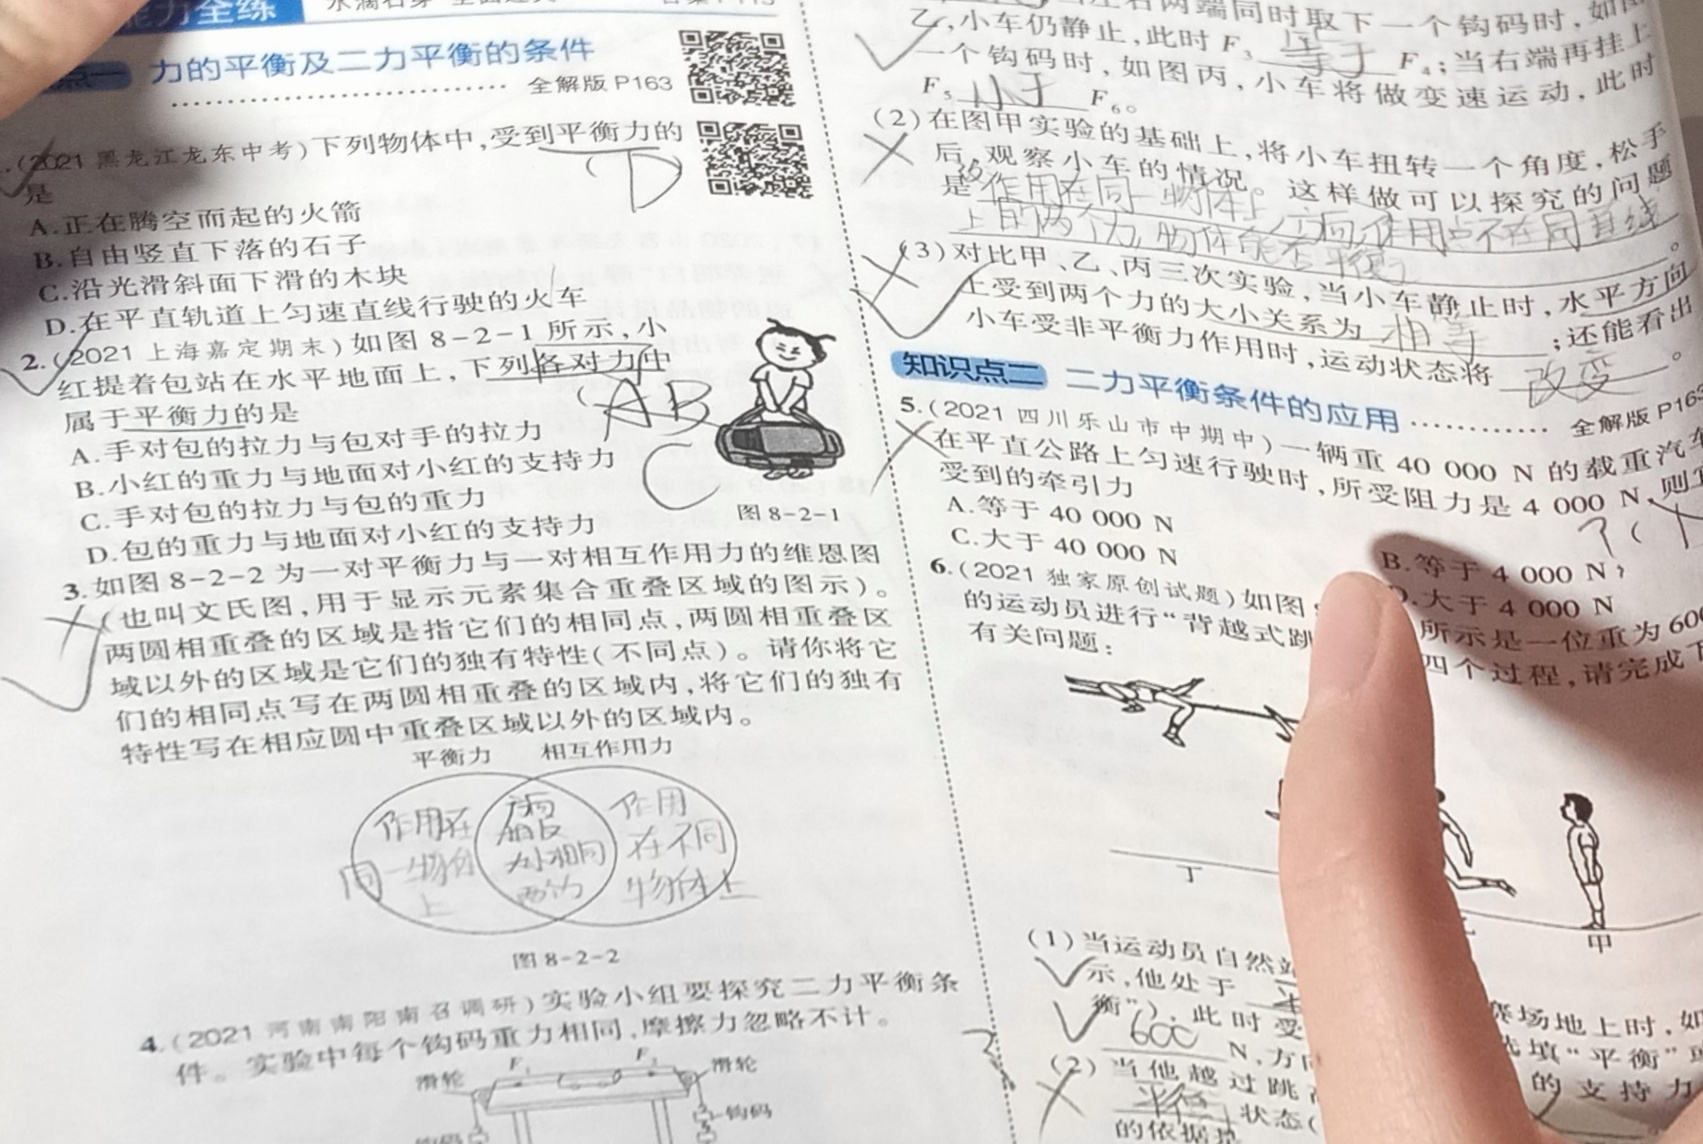 力全练
力的平衡及二力平衡的条件
全解版 P163
(2021 黑龙江龙东中考)下列物体中,受到平衡力的
是
D
A.正在腾空而起的火箭
B.自由竖直下落的石子
C.沿光滑斜面下滑的木块
D.在平直轨道上匀速直线行驶的火车
2.(2021 上海嘉定期末)如图 8-2-1 所示,小
红提着包站在水平地面上,下列各对力中
属于平衡力的是
AB
C
A.手对包的拉力与包对手的拉力
B.小红的重力与地面对小红的支持力
C.手对包的拉力与包的重力
D.包的重力与地面对小红的支持力
图 8-2-1
3.如图 8-2-2 为一对平衡力与一对相互作用力的维恩图
(也叫文氏图,用于显示元素集合重叠区域的图示)。
两圆相重叠的区域是指它们的相同点,两圆相重叠区
域以外的区域是它们的独有特性(不同点)。请你将它
们的相同点写在两圆相重叠的区域内,将它们的独有
特性写在相应圆中重叠区域以外的区域内。
平衡力 相互作用力
作用在
同一物体
上
相反
大小相同
作用
在不同
物体上
图 8-2-2
4.(2021 河南南阳南召调研)实验小组要探究二力平衡条
件。实验中每个钩码重力相同,摩擦力忽略不计。
滑轮 F₁ F₂ 滑轮
钩码
右两端同时取下一个钩码时,如
乙,小车仍静止,此时 F₃ 等于 F₄;当右端再挂上
一个钩码时,如图丙,小车将做变速运动,此时
F₅ 小于 F₆。
(2)在图甲实验的基础上,将小车扭转一个角度,松手
后,观察小车的情况。这样做可以探究的问题
是 作用在同一物体上
上的两个力 物体能否平衡
。
(3)对比甲、乙、丙三次实验,当小车静止时,水平方向
上受到两个力的大小关系为 相等 ;还能看出
小车受非平衡力作用时,运动状态将 改变 。
知识点二 二力平衡条件的应用
全解版 P163
5.(2021 四川乐山市中期中)一辆重 40 000 N 的载重汽车
在平直公路上匀速行驶时,所受阻力是 4 000 N,则
受到的牵引力
A.等于 40 000 N
B.等于 4 000 N
C.大于 40 000 N
大于 4 000 N
6.(2021 独家原创试题)如图
所示是一位重为 600
的运动员进行“背越式跳
四个过程,请完成下
有关问题:
丁
甲
(1)当运动员自然
赛场地上时,如
示,他处于
填“平衡”
衡”),此时受
的支持力
600 N,方
(2)当他越过跳
平衡 状态(
的依据是